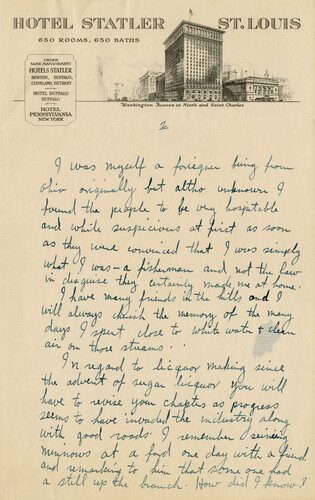 HOTEL STATLER ST. LOUIS
650 ROOMS, 650 BATHS
UNDER
SAME MANAGEMENT
HOTELS STATLER
BOSTON, BUFFALO,
CLEVELAND, DETROIT
HOTEL BUFFALO
BUFFALO
HOTEL
PENNSYLVANIA
NEW YORK
Washington Avenue at Ninth and Saint Charles
2
I was myself a foreigner being from
Ohio originally but altho unknown I
found the people to be very hospitable
and while suspicious at first as soon
as they were convinced that I was simply
what I was – a fisherman and not the law
in disguise they certainly made me at home.
I have many friends in the hills and I
will always cherish the memory of the many
days I spent close to white water & clean
air on those streams.
In regard to licquor making since
the advent of sugar licquor you will
have to revise your chapter as progress
seems to have invaded the industry along
with good roads. I remember seining
mynnows at a ford one day with a friend
and remarking to him that some one had
a still up the branch. How did I know?